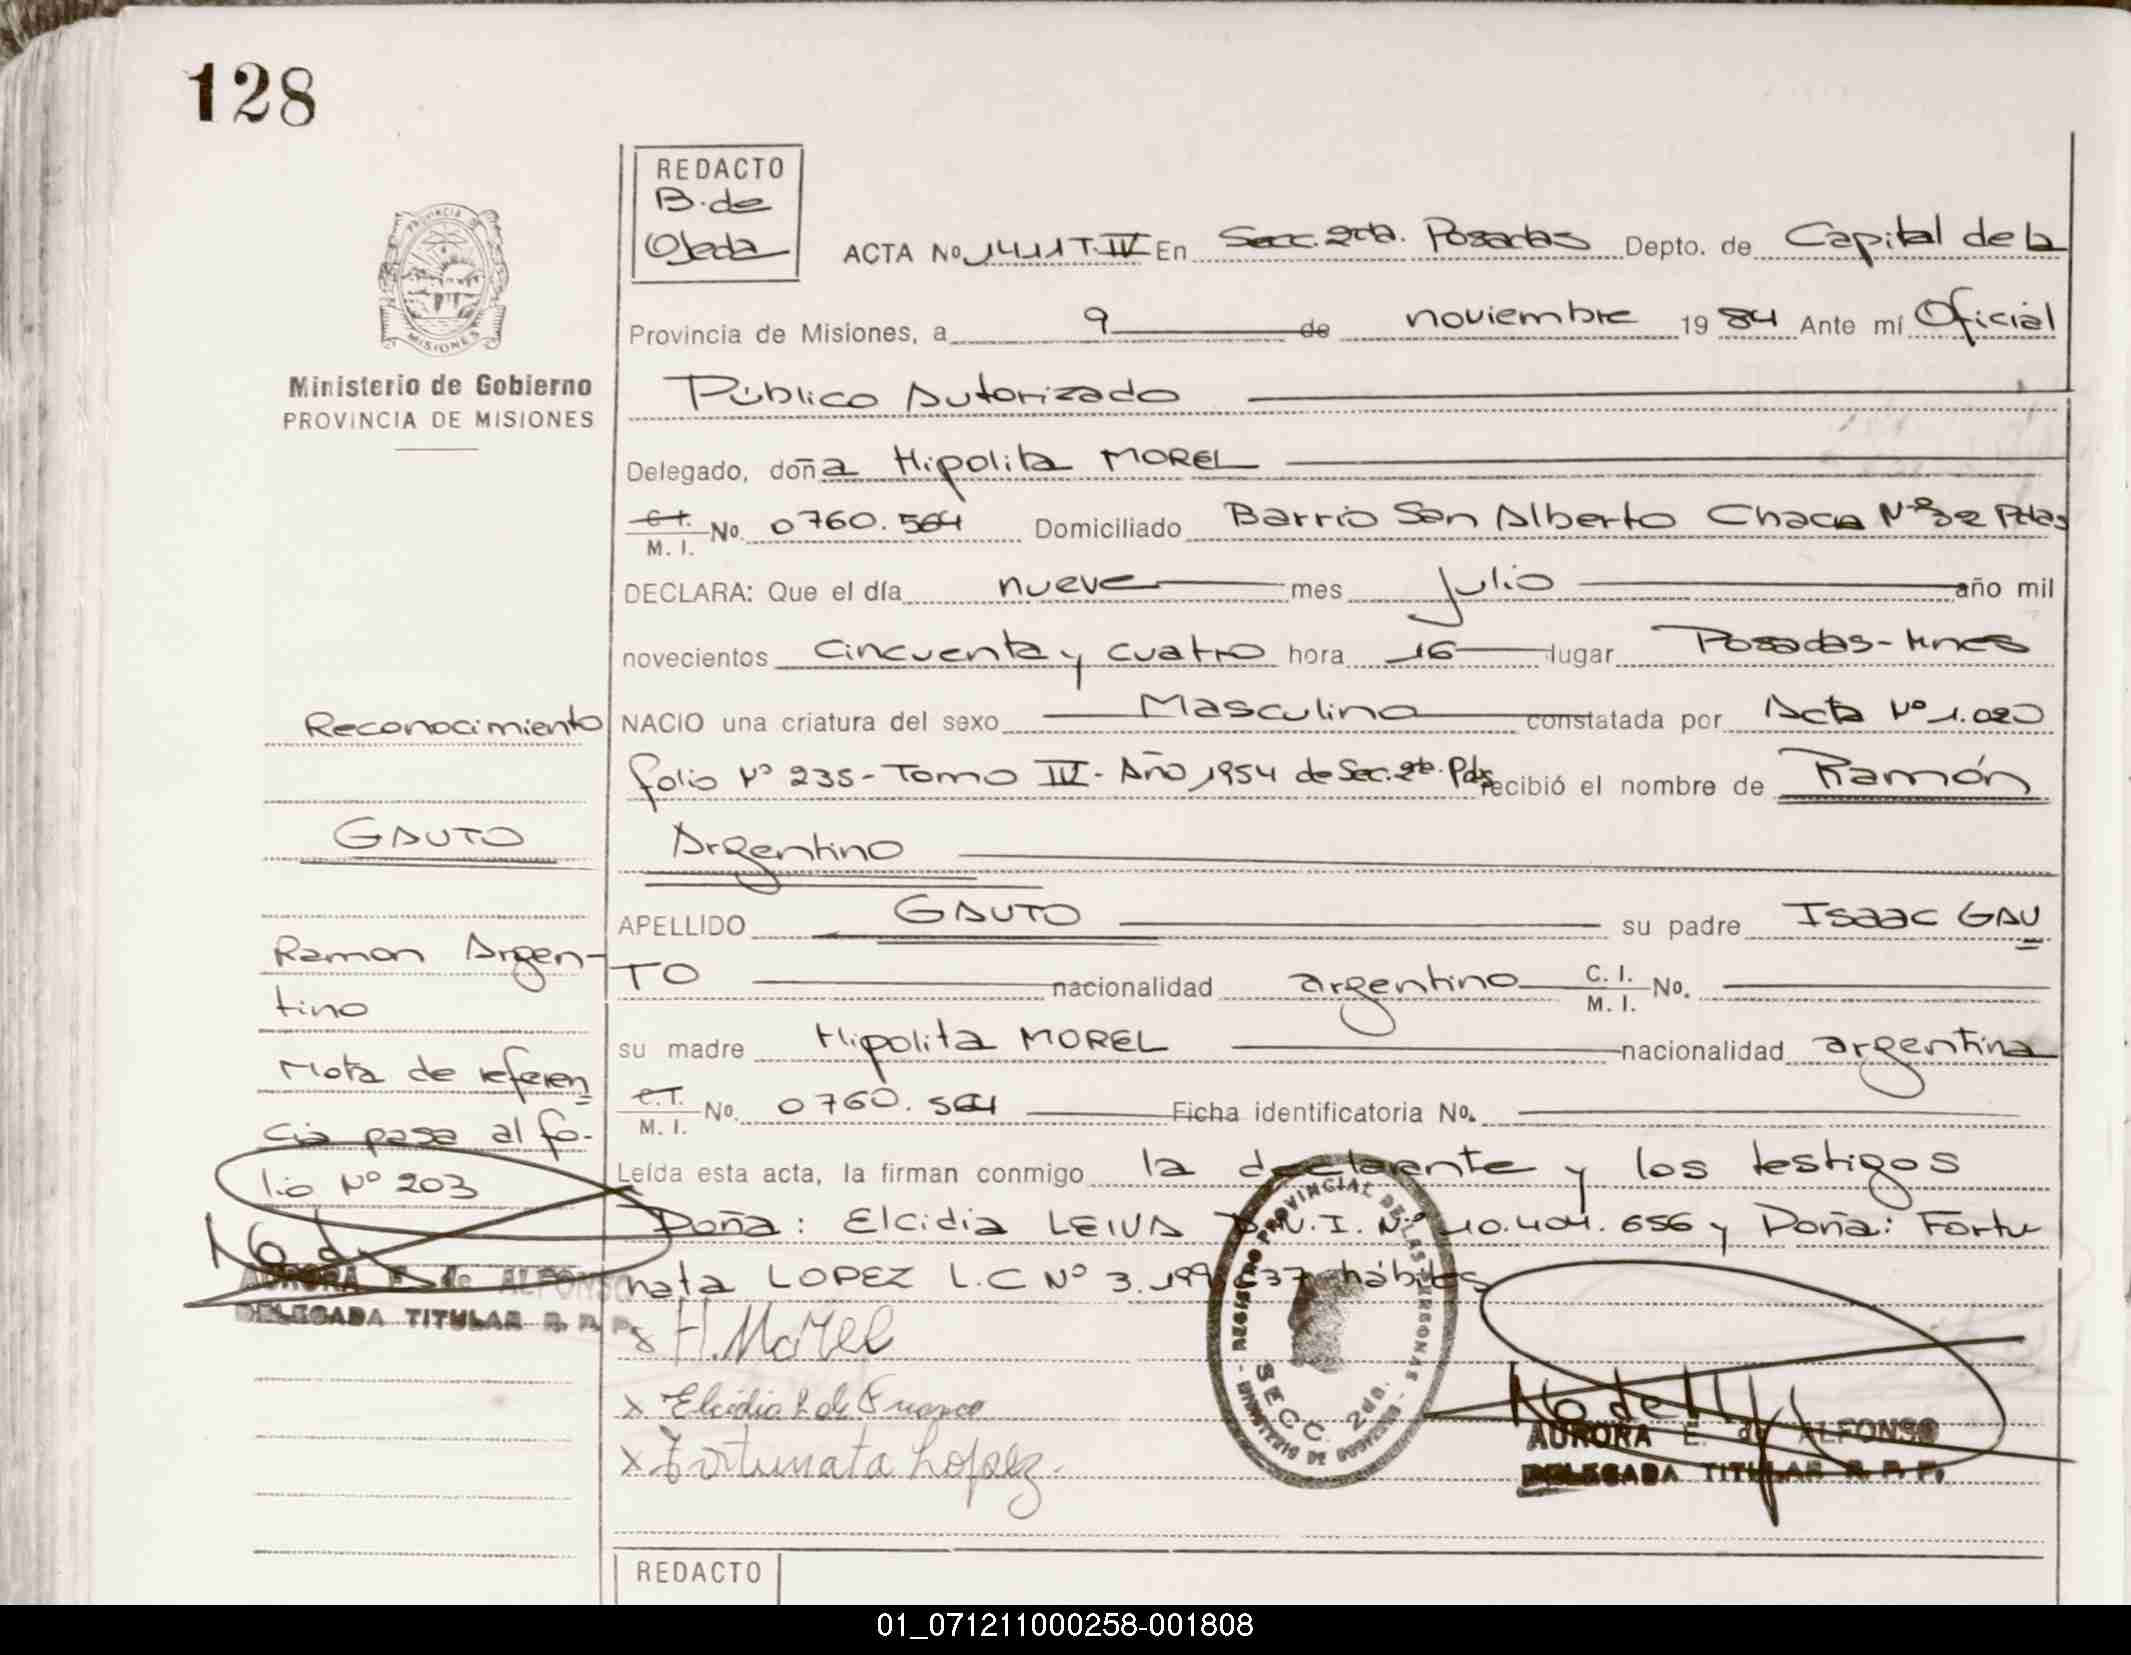 128
REDACTO
B. de
Ojeda
ACTA No 1411 T. IV En Secc. 2da. Posadas Depto. de Capital de la
Provincia de Misiones, a 9 de noviembre 1984 Ante mí Oficial
Público Autorizado
Delegado, doña Hipolita MOREL
C.I. M. I. No. 0760.564 Domiciliado Barrio San Alberto Chaca Nº 32 Pdas
DECLARA: Que el día nueve mes julio año mil
novecientos cincuenta y cuatro hora 16 lugar Posadas - Mnes
NACIO una criatura del sexo Masculino constatada por Acta Nº 1.020
folio Nº 235 - Tomo III - Año 1954 de Sec. 2da. Pdas recibió el nombre de Ramón
Argentino
APELLIDO GAUTO su padre Isaac GAU
TO nacionalidad argentino C. I. M. I. No.
su madre Hipolita MOREL nacionalidad argentina
C.I. M. I. No. 0760.564 Ficha identificatoria No.
Leída esta acta, la firman conmigo la declarante y los testigos
Doña: Elcidia LEIVA D.N.I. Nº 10.404.656 y Doña: Fortu
nata LOPEZ L.C Nº 3.199. 37 hábiles
x H. Morel
x Elcidia L de
x Fortunata Lopez.
PROVINCIA DE
MISIONES
Ministerio de Gobierno
PROVINCIA DE MISIONES
Reconocimiento
GAUTO
Ramon Argen-
tino
Nota de referen
cia pasa al fo-
lio Nº 203
AURORA E. de ALFONSO
DELEGADA TITULAR R. P. P.
REGISTRO PROVINCIAL DE LAS PERSONAS - MINISTERIO DE GOBIERNO -
SECC. 2da.
AURORA E. de ALFONSO
DELEGADA TITULAR R. P. P.
REDACTO
01_071211000258-001808